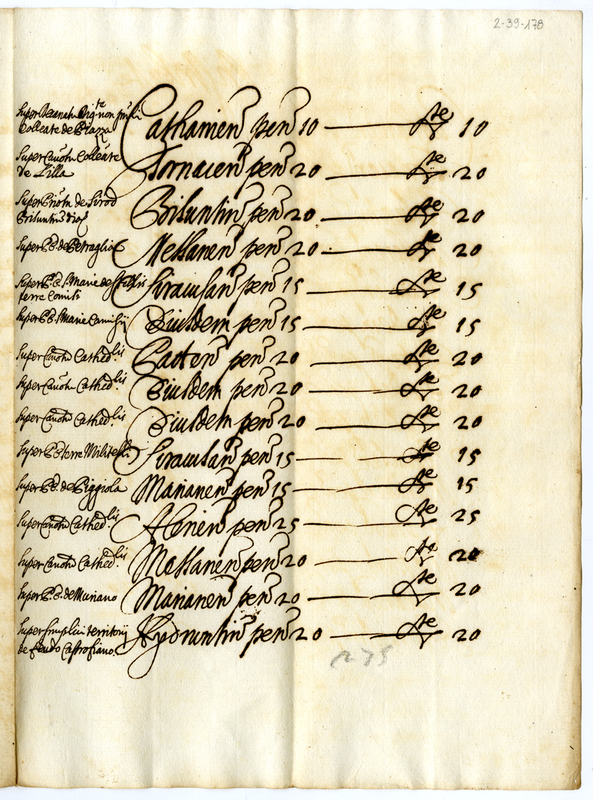 2-39-178
Super Decanatu Dig.te non pnli
Colleáte de Piazza
Cathanien penˢ 10 — 10
Super Canotu Colleáte
de Lilla
Tornacen penˢ 20 — 20
Super Priotu de Sirod
Bisuntin
Bisuntin penˢ 20 — 20
Super de Petraglia
Messanen penˢ 20 — 20
Super S. Marie de
terre Comitis
Siracusan penˢ 15 — 15
Super S. Marie
Eiusdem penˢ 15 — 15
Super Canotu Cathedlis
Pacten penˢ 20 — 20
Super Canotu Cathedlis
Eiusdem penˢ 20 — 20
Super Canotu Cathedlis
Eiusdem penˢ 20 — 20
Super terre Militelli
Siracusan penˢ 15 — 15
Super de Piggiola
Marianen penˢ 15 — 15
Super Canotu Cathedlis
Alerien penˢ 25 — 25
Super Canotu Cathedlis
Massanen penˢ 20 — 20
Super de Muriano
Marianen penˢ 20 — 20
Super simplici territorij
de feudo Castrofiano
Hydruntin penˢ 20 — 20
275